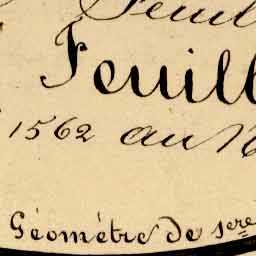 Feuil
Feuill
1562 au N
Géomètre de 1ere